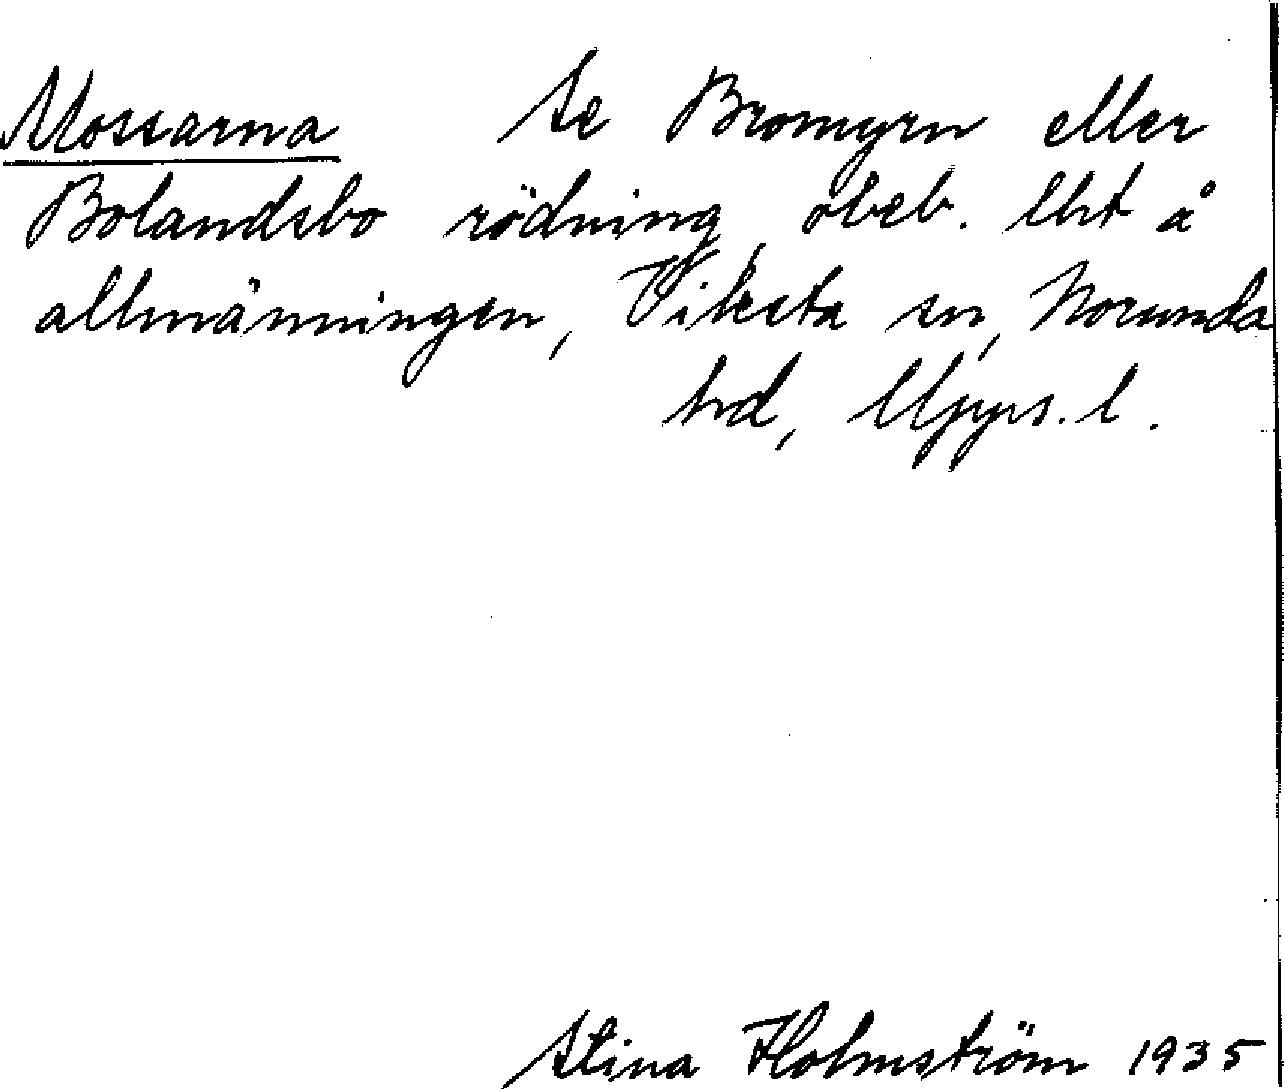 Mossarna Se Bromyrn eller
Bolandsbo rödning, obeb. lht å
allmänningen, Viksta sn, Norunda
hd, Upps. l.
Stina Holmström 1935